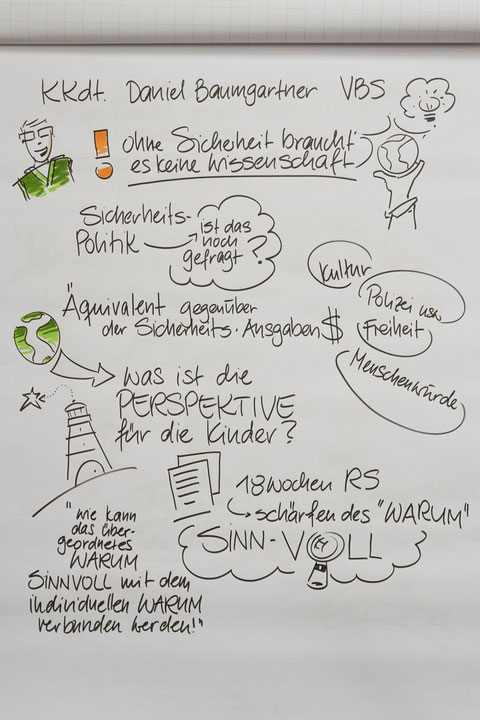 KKdt. Daniel Baumgartner VBS
! ohne Sicherheit braucht
es keine Wissenschaft
Sicherheits-
Politik
ist das
noch
gefragt?
Kultur
Polizei usw.
Freiheit
Menschenwürde
Äquivalent gegenüber
der Sicherheits-Ausgaben $
was ist die
PERSPEKTIVE
für die Kinder?
18 Wochen RS
schärfen des "WARUM"
SINN-VOLL
"wie kann
das über-
geordnetes
WARUM
SINNVOLL mit dem
individuellen WARUM
verbunden werden!"